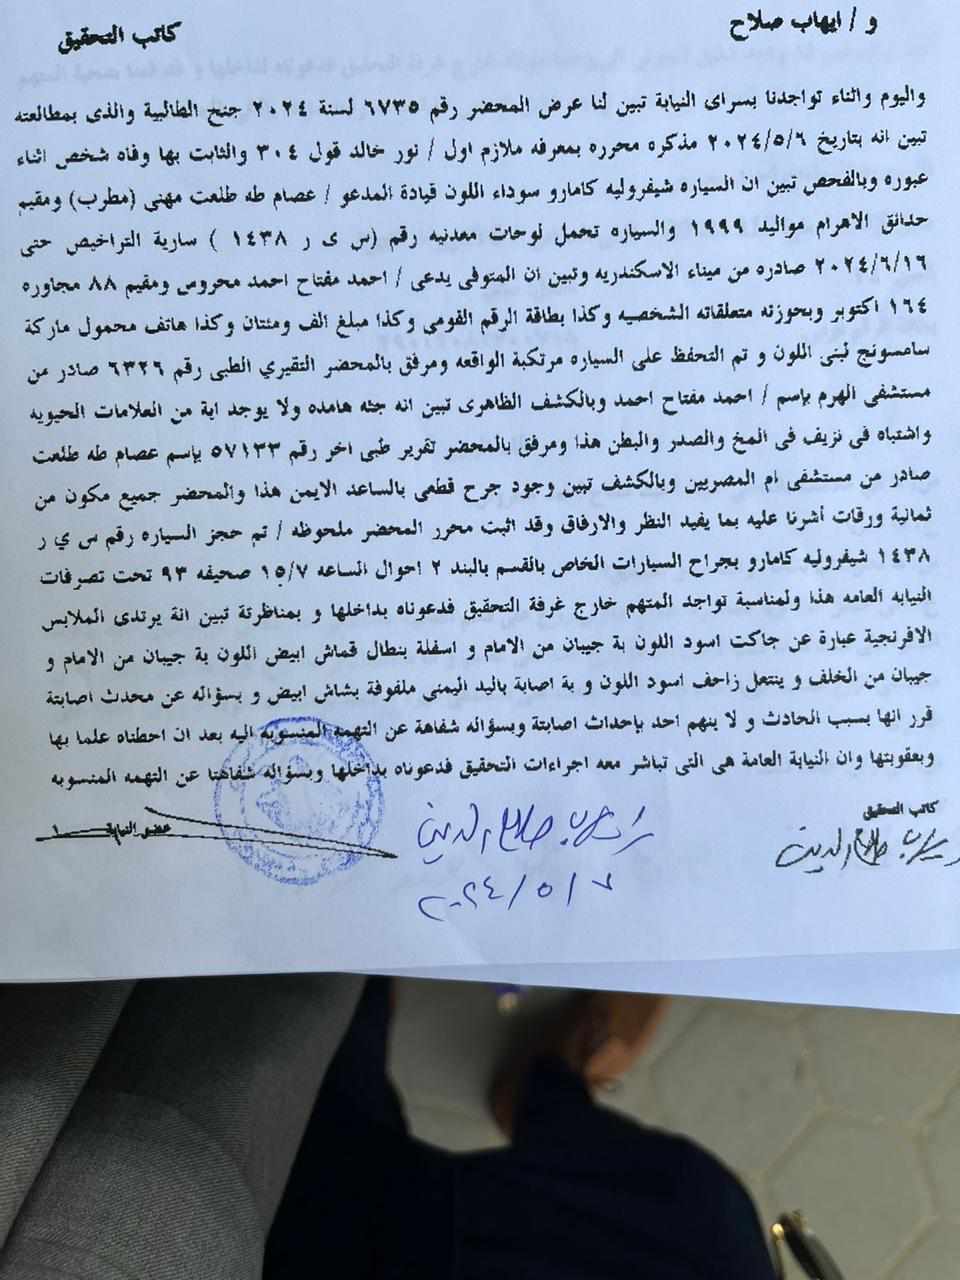 و / ايهاب صلاح
كاتب التحقيق
واليوم واثناء تواجدنا بسراى النيابة تبين لنا عرض المحضر رقم ٦٧٣٥ لسنة ٢٠٢٤ جنح الطالبية والذى بمطالعته
تبين انه بتاريخ ٢٠٢٤/٥/٦ مذكره محرره بمعرفه ملازم اول / نور خالد قول ٣٠٤ والثابت بها وفاه شخص اثناء
عبوره وبالفحص تبين ان السياره شيفروليه كامارو سوداء اللون قيادة المدعو / عصام طه طلعت مهنى (مطرب) ومقيم
حدائق الاهرام مواليد ١٩٩٩ والسياره تحمل لوحات معدنيه رقم (س ى ر ١٤٣٨ ) سارية التراخيص حتى
٢٠٢٤/٦/١٦ صادره من ميناء الاسكندريه وتبين ان المتوفى يدعى / احمد مفتاح احمد محروس ومقيم ٨٨ مجاوره
١٦٤ اكتوبر وبحوزته متعلقاته الشخصيه وكذا بطاقة الرقم القومى وكذا مبلغ الف ومئتان وكذا هاتف محمول ماركة
سامسونج لبنى اللون و تم التحفظ على السياره مرتكبة الواقعه ومرفق بالمحضر التقيري الطبى رقم ٦٣٢٦ صادر من
مستشفى الهرم بإسم / احمد مفتاح احمد وبالكشف الظاهرى تبين انه جثه هامده ولا يوجد اية من العلامات الحيويه
واشتباه فى نزيف فى المخ والصدر والبطن هذا ومرفق بالمحضر تقرير طبى اخر رقم ٥٧١٣٣ بإسم عصام طه طلعت
صادر من مستشفى ام المصريين وبالكشف تبين وجود جرح قطعى بالساعد الايمن هذا والمحضر جميع مكون من
ثمانية ورقات أشرنا عليه بما يفيد النظر والارفاق وقد اثبت محرر المحضر ملحوظه / تم حجز السياره رقم س ي ر
١٤٣٨ شيفروليه كامارو بجراح السيارات الخاص بالقسم بالبند ٢ احوال الساعه ١٥/٧ صحيفه ٩٣ تحت تصرفات
النيابه العامه هذا ولمناسبة تواجد المتهم خارج غرفة التحقيق فدعوناه بداخلها و بمناظرتة تبين انة يرتدى الملابس
الافرنجية عبارة عن جاكت اسود اللون بة جيبان من الامام و اسفلة بنطال قماش ابيض اللون بة جيبان من الامام و
جيبان من الخلف و ينتعل زاحف اسود اللون و بة اصابة باليد اليمنى ملفوفة بشاش ابيض و بسؤاله عن محدث اصابتة
قرر انها بسبب الحادث و لا ينهم احد بإحداث اصابتة وبسؤاله شفاهة عن التهمه المنسوبه اليه بعد ان احطناه علما بها
وبعقوبتها وان النيابة العامة هى التى تباشر معه اجراءات التحقيق فدعوناه بداخلها وبسؤاله شفاهتا عن التهمه المنسوبه
كاتب التحقيق
عضو النيابة
ايهاب صلاح الدين
ايهاب صلاح الدين
٢٠٢٤/٥/٧